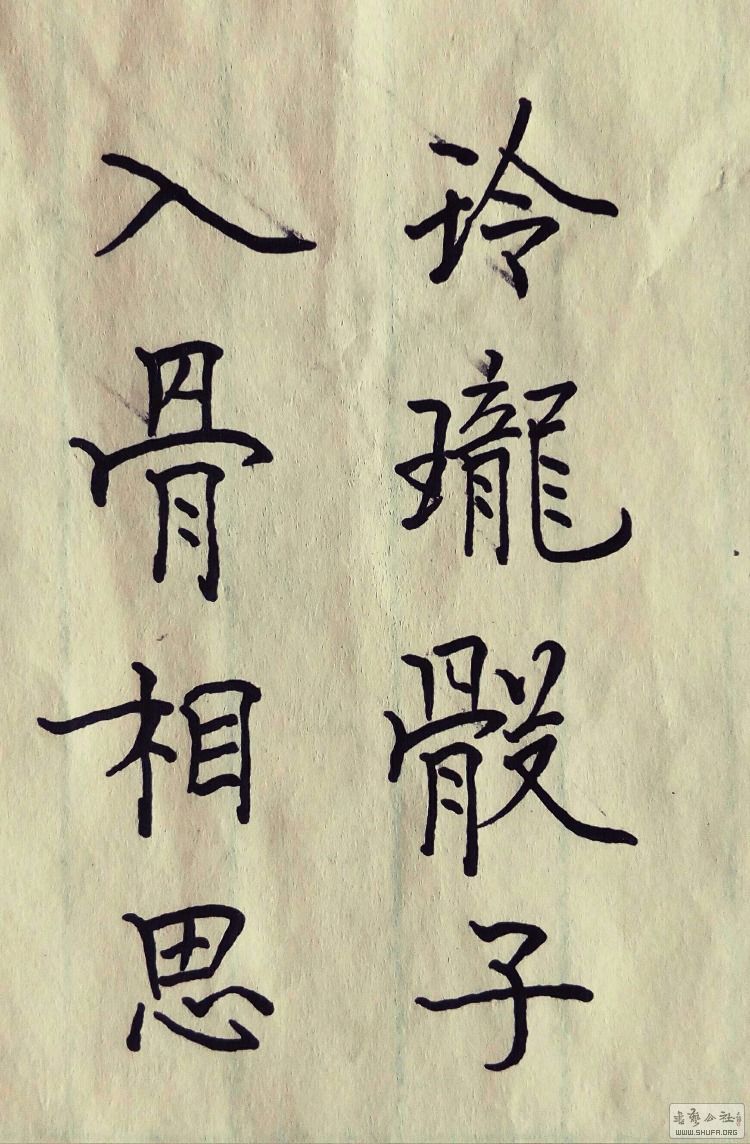 玲瓏骰子
入骨相思
书艺公社
WWW.SHUFA.ORG